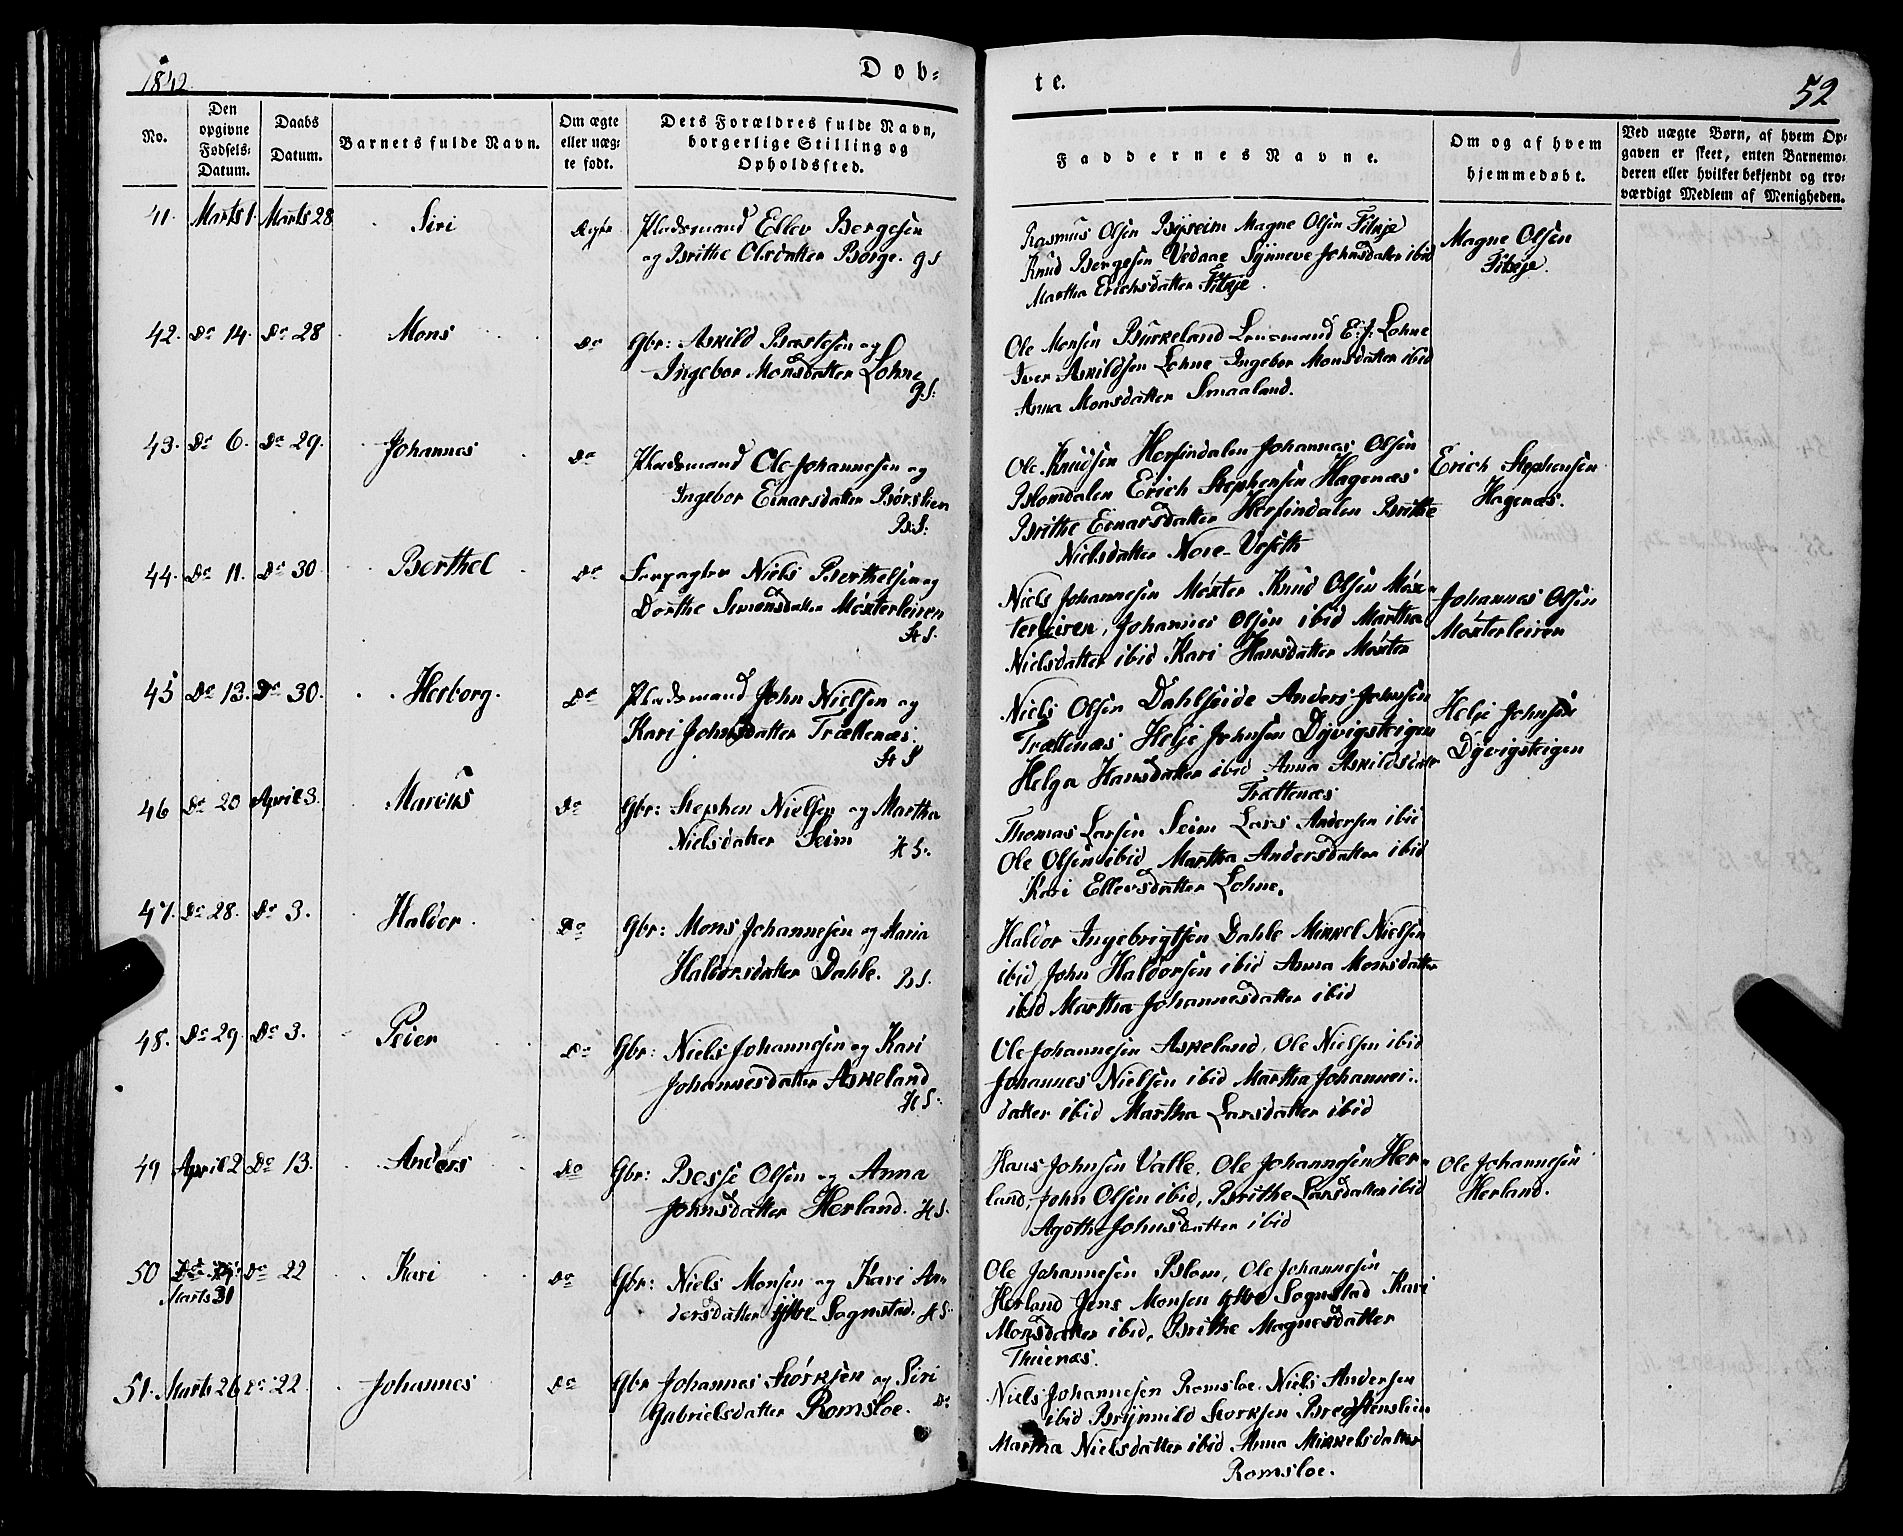 1842.
Døb-
te.
52
No.
Den opgivne Fødsels-Datum.
Daabs Datum.
Barnets fulde Navn.
Om ægte eller uægte født.
Dets Forældres fulde Navn, borgerlige Stilling og Opholdssted.
Faddernes Navne.
Om og af hvem hjemmedøbt.
Ved uægte Børn, af hvem Opgaven er skeet, enten Barnemoderen eller hvilket bekjendt og troværdigt Medlem af Menigheden.
41. Marts 1. Marts 28 Siri
Pladsmand Ellev Bergesen
og Brithe Olsdatter Borge. gS
Rasmus Olsen Bysheim Magne Olsen Fitxje
Knud Bergesen Vedaae Synneve Johnsdatter ibid
Martha Erichsdatter Fitxje.
Magne Olsen
Fitxje.
42. Do 14. Do 28 Mons Do
Gbr: Askild Bertesen og
Ingebor Monsdatter Lohne
gS:
Ole Monsen Birkeland Lensmand E: J: Lohne
Iver Askildsen Lohne Ingebor Monsdatter ibid
Anna Monsdatter Smaaland.
43. Do 6. Do 29. Johannes Do
Pladsmand Ole Johannesen og
Ingebor Einarsdatter Børslien
BS:
Ole Knudsen Herfindalen Johannes Olsen
Blomdalen Erich Stephensen Hagenæs
Brithe Einarsdatter Herfindalen Brithe
Nielsdatter Nore-Useth
Erich Stephensen
Hagenæs.
44. Do 11. Do 30 Berthel Do
Forpagter Niels Berthelsen og
Dorthe Simonsdatter Møxterleiren
HS.
Niels Johannesen Møxter Knud Olsen Møx-
terleiren, Johannes Olsen ibid Martha
Nielsdatter ibid Kari Hansdatter Møxter
Johannes Olsen
Møxterleiren
45 Do 13. Do 30. Herborg. Do
Pladsmand John Nielsen og
Kari Johnsdatter Trættenæs.
HS
Niels Olsen Dahlseide Anders Johnsen
Trættenæs Helje Johnsen Dyvigsteigen
Helga Hansdatter ibid Anna Askildsdatter
Trættenæs
Helje Johnsen
Dyvigsteigen
46 Do 20 April 3. Marcus Do
Gbr: Stephen Nielsen og Martha
Nielsdatter Seim HS.
Thomas Larsen Seim Lars Andersen ibid
Ole Olsen ibid Martha Andersdatter ibid
Kari Ellevsdatter Lohne.
47. Do 28. Do 3. Haldor Do
Gbr: Mons Johannesen og Maria
Haldorsdatter Dahle. BS.
Haldor Ingebrigtsen Dahle Mikkel Nielsen
ibid John Haldorsen ibid Anna Monsdatter
ibid Martha Johannesdatter ibid
48. Do 29. Do 3. Peier Do
Gbr: Niels Johannesen og Kari
Johannesdatter Askeland
HS.
Ole Johannesen Askeland, Ole Nielsen ibid
Johannes Nielsen ibid Martha Johannes-
datter ibid Martha Larsdatter ibid
49 April 2 Do 13. Anders Do
Gbr: Besse Olsen og Anna
Johnsdatter Herland. HS.
Hans Johnsen Valle, Ole Johannesen Her-
land, John Olsen ibid, Brithe Larsdatter ibid
Agothe Johnsdatter ibid
Ole Johannesen
Herland.
50 Marts 31 Do 22 Kari Do
Gbr: Niels Monsen og Kari An-
dersdatter Ytre-Sognstad. HS.
Ole Johannesen Blom, Ole Johannesen
Herland Jens Monsen Ytre Sognstad Kari
Monsdatter ibid, Brithe Magnesdatter
Thuenæs.
51. Marts 26 Do 22. Johannes Do
Gbr Johannes Størksen og Siri
Gabrielsdatter Romsloe. Do
Niels Johannesen Romsloe. Niels Andersen
ibid Brynnild Storksen Bredstenslien
Martha Nielsdatter ibid Anna Mikkelsdatter
Romsloe.